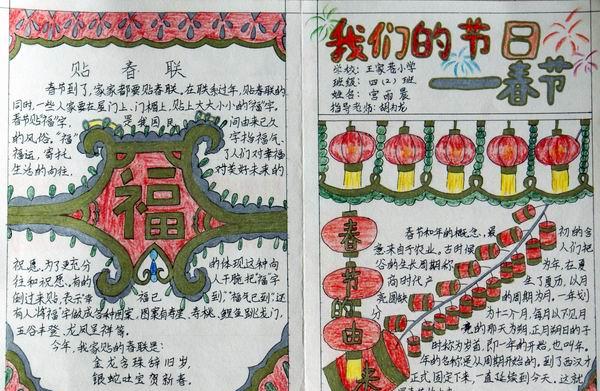 贴春联
春节到了,家家都要贴春联,在联系过年,贴春联的
同时,一些人家要在屋门上、门楣上,贴上大大小小的"福"字,
春节贴"福"字 是我国民 间由来已久
的风俗。"福" 字指福气、
福运,寄托 了人们对幸福
生活的向往, 对美好未来的
福
祝愿,为了更充分 的体现这种向
往和祝愿,有的 人干脆把"福"字
倒过来贴,表示"幸 福已 到""福气已到"还
有人将"福"字做成各种图案,图案有寿星、寿桃、鲤鱼跳龙门、
五谷丰登、龙凤呈祥等。
今年,我家贴的春联是:
金龙含珠辞旧岁,
银蛇吐宝贺新春。
我们的节日
——春节
学校:王家巷小学
班级:四(2)班
姓名:宫雨晨
指导老师:
春节的由来
春节和年的概念,最 初的含
意来自于农业。古时候 人们把
谷的生长周期称 为年,在夏
商时代产 生了夏历,以月
亮圆缺 的周期为月,一年划
分 为十二个月,每月以不见月
亮的那天为朔,正月朔日的子
时称为岁首,即一年的开始,也叫年,
年的名称是从周朝开始的,到了西汉才
正式固定下来,一直延续到今天,这就